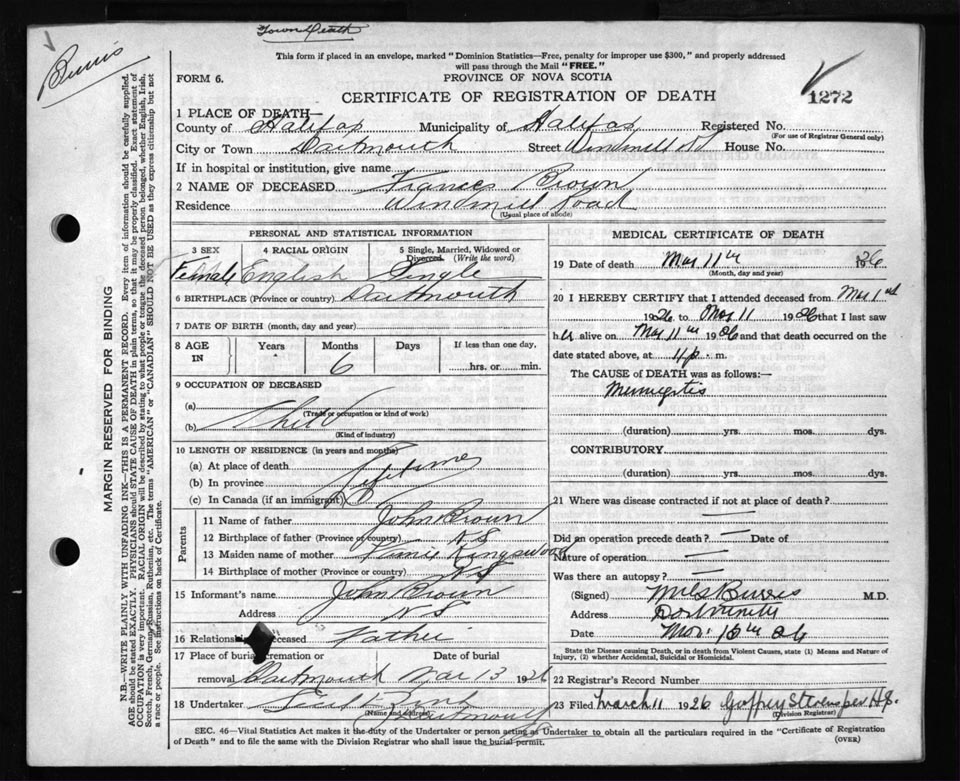 Town Death
Burris
This form if placed in an envelope, marked "Dominion Statistics—Free, penalty for improper use $300," and properly addressed
will pass through the Mail "FREE."
FORM 6.
PROVINCE OF NOVA SCOTIA
CERTIFICATE OF REGISTRATION OF DEATH
1272
1 PLACE OF DEATH—
County of Halifax Municipality of Halifax Registered No.
(For use of Registrar General only)
City or Town Dartmouth Street Windmill Rd House No.
If in hospital or institution, give name
2 NAME OF DECEASED Frances Brown
Residence Windmill Road
(Usual place of abode)
PERSONAL AND STATISTICAL INFORMATION
3 SEX 4 RACIAL ORIGIN 5 Single, Married, Widowed or
Divorced (Write the word)
Female English Single
6 BIRTHPLACE (Province or country) Dartmouth
7 DATE OF BIRTH (month, day and year)
8 AGE IN Years Months Days If less than one day,
6 hrs. or min.
9 OCCUPATION OF DECEASED
(a)
(Trade or occupation or kind of work)
(b) Child
(Kind of industry)
10 LENGTH OF RESIDENCE (in years and months)
(a) At place of death
(b) In province Lifetime
(c) In Canada (if an immigrant)
Parents
11 Name of father John Brown
12 Birthplace of father (Province or country) N S
13 Maiden name of mother Kingswood
14 Birthplace of mother (Province or country) N S
15 Informant's name John Brown
Address N S
16 Relationship deceased Father
17 Place of burial, cremation or Date of burial
removal Dartmouth Mar 13 1926
18 Undertaker
(Name and address) Dartmouth
MEDICAL CERTIFICATE OF DEATH
19 Date of death Mar 11th 1926
(Month, day and year)
20 I HEREBY CERTIFY that I attended deceased from Mar 1st
1926 to Mar 11 1926 that I last saw
her alive on Mar 11th 1926 and that death occurred on the
date stated above, at 11 p. m.
The CAUSE OF DEATH was as follows:—
Meningitis
(duration) yrs. mos. dys.
CONTRIBUTORY.
(duration) yrs. mos. dys.
21 Where was disease contracted if not at place of death?
Did an operation precede death? Date of
Nature of operation
Was there an autopsy?
(Signed) Burris M.D.
Address Dartmouth
Date
State the Disease causing Death, or in death from Violent Causes, state (1) Means and Nature of
Injury, (2) whether Accidental, Suicidal or Homicidal.
22 Registrar's Record Number
23 Filed March 11 1926
(Division Registrar)
SEC. 46—Vital Statistics Act makes it the duty of the Undertaker or person acting as Undertaker to obtain all the particulars required in the "Certificate of Registration
of Death" and to file the same with the Division Registrar who shall issue the burial permit. (OVER)
MARGIN RESERVED FOR BINDING
N.B.—WRITE PLAINLY WITH UNFADING INK—THIS IS A PERMANENT RECORD. Every item of information should be carefully supplied.
AGE should be stated EXACTLY. PHYSICIANS should STATE CAUSE OF DEATH in plain terms, so that it may be properly classified. Exact statement of
OCCUPATION is very important. RACIAL ORIGIN will be described by stating to what people or tongue the deceased person belonged, whether English, Irish,
Scotch, French, German, Russian, Ruthenian, etc. The terms "AMERICAN" or "CANADIAN" SHOULD NOT BE USED as they express citizenship but not
a race or people. See instructions on back of Certificate.